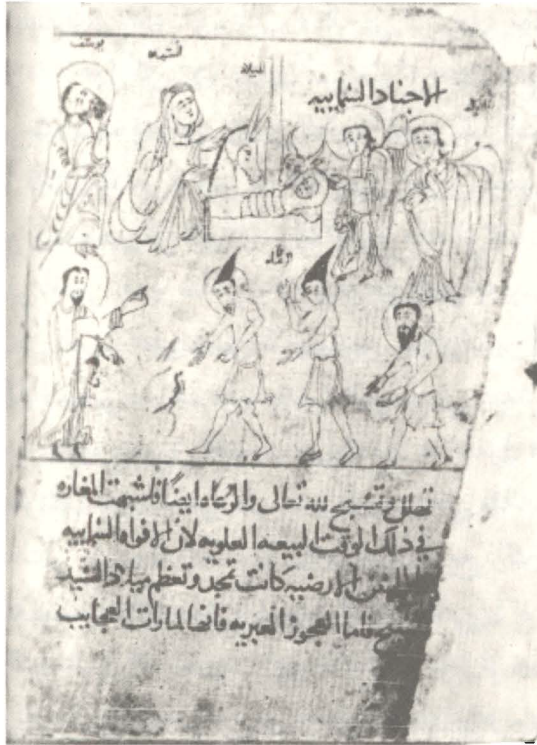 يوسف
السيده
الميلاد
الاجناد السمايىه
الرعاه
تهلل وتسبح لله تعالى والرعاه ايضًا فاشبهت المغاره
في ذلك الوقت البيعه العلويه لان الافواه السمايىه
الارضيه كانت تمجد وتعظم ميلاد السيد
فاما العجوز العبريه فانها لما رات العجايب